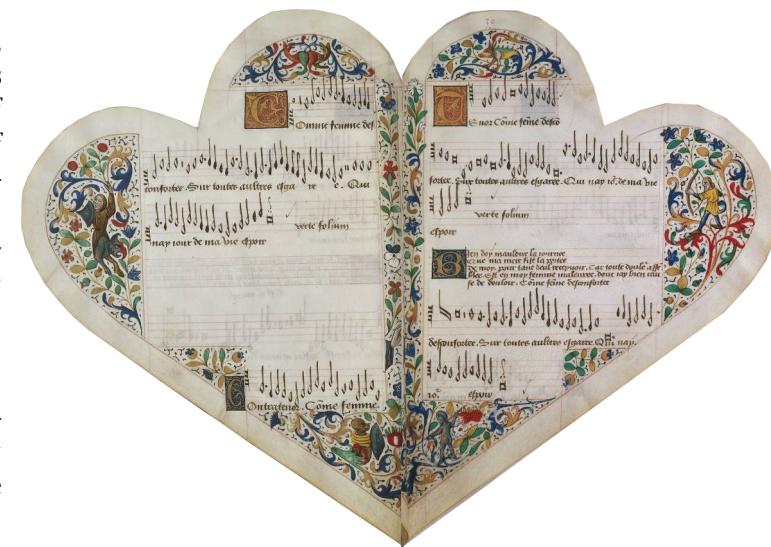 Comme femme des
confortee. Sur toutes aultres esga re e. Qui
nay iour de ma vie espoir
verte folium
Contratenor. Cõme femme
70
Tenor Cõme feme desco
fortee. Sur toutes aultres esgaree. Qui nay io. de ma vie
espoir
verte folium
Bien doy mauldire la iournee
Que ma mere fist la
De moy. pour tant deul recepuoir. Car toute
Est en moy femme maleuree. dont iay bien cau
se de douloir. Cõme feme desconfortee
desconfortee. Sur toutes aultres esgaree. Qui nay
io. espoir